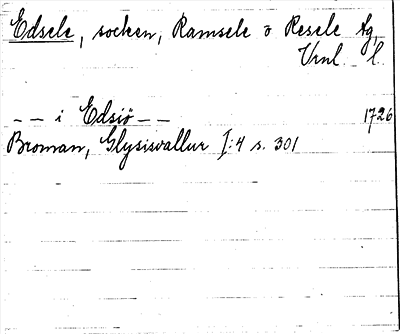 Edsele, socken, Ramsele o Resele tg,
Vrnl. l.
-- i Edsiö -- 1726
Broman, Glysisvallur I:4 s. 301